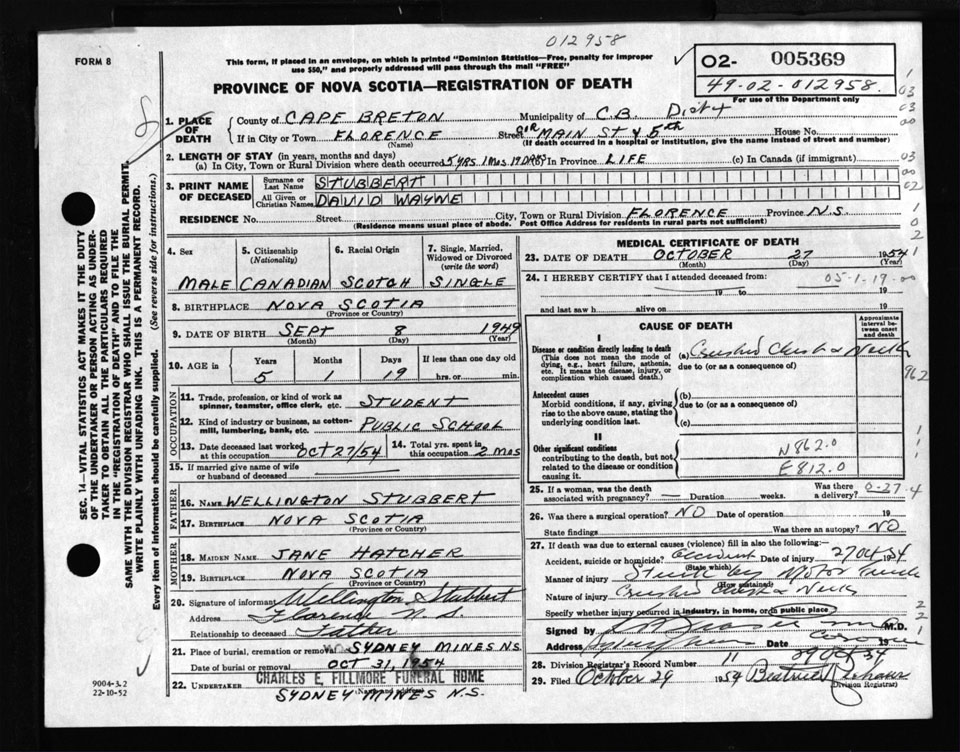 012958
FORM 8
This form, if placed in an envelope, on which is printed "Dominion Statistics—Free, penalty for improper
use $50," and properly addressed will pass through the mail "FREE"
PROVINCE OF NOVA SCOTIA—REGISTRATION OF DEATH
O2- 005369
49-02-012958
For use of the Department only
1. PLACE OF DEATH
County of CAPE BRETON Municipality of C.B. Dist
If in City or Town FLORENCE Street MAIN ST & 5th House No.
(Name) (If death occurred in a hospital or institution, give the name instead of street and number)
2. LENGTH OF STAY (in years, months and days)
(a) In City, Town or Rural Division where death occurred 5 YRS 1 MOS 19 DAYS In Province LIFE (c) In Canada (if immigrant)
3. PRINT NAME OF DECEASED
Surname or Last Name STUBBERT
All Given or Christian Names DAVID WAYNE
RESIDENCE No. Street City, Town or Rural Division FLORENCE Province N.S.
(Residence means usual place of abode. Post Office Address for residents in rural parts not sufficient)
4. Sex 5. Citizenship (Nationality) 6. Racial Origin 7. Single, Married, Widowed or Divorced (write the word)
MALE CANADIAN SCOTCH SINGLE
8. BIRTHPLACE NOVA SCOTIA
(Province or Country)
9. DATE OF BIRTH SEPT 8 1949
(Month) (Day) (Year)
10. AGE in Years Months Days If less than one day old
5 1 19 hrs. or min.
OCCUPATION
11. Trade, profession, or kind of work as spinner, teamster, office clerk, etc. STUDENT
12. Kind of industry or business, as cotton-mill, lumbering, bank, etc. PUBLIC SCHOOL
13. Date deceased last worked at this occupation OCT 27/54 14. Total yrs. spent in this occupation 2 MOS
15. If married give name of wife or husband of deceased
FATHER
16. NAME WELLINGTON STUBBERT
17. BIRTHPLACE NOVA SCOTIA
(Province or Country)
MOTHER
18. MAIDEN NAME JANE HATCHER
19. BIRTHPLACE NOVA SCOTIA
(Province or Country)
20. Signature of informant Wellington Stubbert
Address Florence N.S.
Relationship to deceased Father
21. Place of burial, cremation or removal SYDNEY MINES N.S.
Date of burial or removal OCT 31, 1954
22. UNDERTAKER CHARLES E. FILLMORE FUNERAL HOME
SYDNEY MINES N.S.
MEDICAL CERTIFICATE OF DEATH
23. DATE OF DEATH OCTOBER 27 1954
(Month) (Day)
24. I HEREBY CERTIFY that I attended deceased from:
19 to 19
and last saw h alive on 19
CAUSE OF DEATH
Approximate interval between onset and death
I
Disease or condition directly leading to death
(This does not mean the mode of dying, e.g., heart failure, asthenia, etc. It means the disease, injury, or complication which caused death.)
(a) Crushed Chest & Neck
due to (or as a consequence of)
962
Antecedent causes
Morbid conditions, if any, giving rise to the above cause, stating the underlying condition last.
(b)
due to (or as a consequence of)
(c)
II
Other significant conditions
contributing to the death, but not related to the disease or condition causing it.
N862.0
E812.0
25. If a woman, was the death associated with pregnancy? — Duration weeks. Was there a delivery?
26. Was there surgical operation? NO Date of operation 19
State findings Was there an autopsy? NO
27. If death was due to external causes (violence) fill in also the following:—
Accident, suicide or homicide? Accident Date of injury 27 Oct 54
(State which)
Manner of injury Struck by Motor Truck
(How sustained)
Nature of injury Crushed Chest & Neck
Specify whether injury occurred in industry, in home, or in public place
Signed by M.D.
Address 19
29 Oct 54
28. Division Registrar's Record Number 11
29. Filed October 29 1954 Beatrice
(Division Registrar)
9004-3.2
22-10-52
SEC. 14—VITAL STATISTICS ACT MAKES IT THE DUTY
OF THE UNDERTAKER OR PERSON ACTING AS UNDER-
TAKER TO OBTAIN ALL THE PARTICULARS REQUIRED
IN THE "REGISTRATION OF DEATH" AND TO FILE THE
SAME WITH THE DIVISION REGISTRAR WHO SHALL ISSUE THE BURIAL PERMIT.
WRITE PLAINLY WITH UNFADING INK. THIS IS A PERMANENT RECORD.
Every item of information should be carefully supplied. (See reverse side for instructions.)